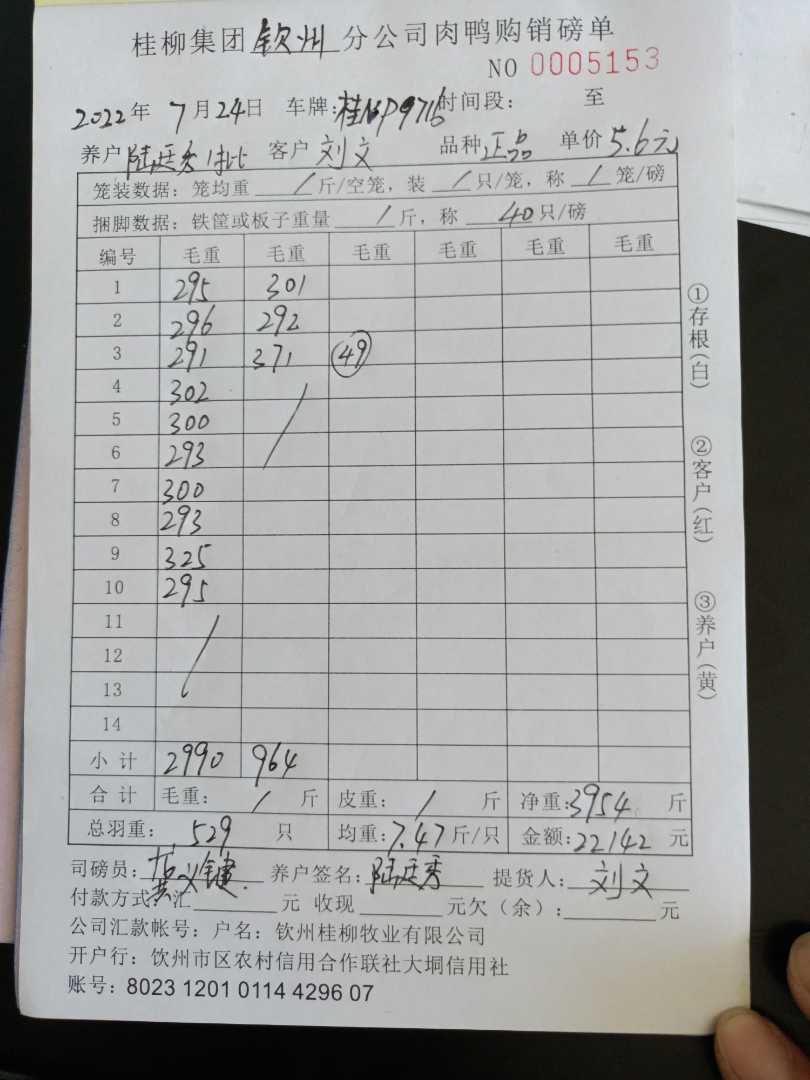 桂柳集团钦州分公司肉鸭购销磅单
NO 0005153
2022年 7月24日 车牌:桂NP9716 时间段: 至
养户 陆廷秀1批 客户 刘文 品种 正品 单价 5.6元
笼装数据: 笼均重 / 斤/空笼, 装 / 只/笼, 称 / 笼/磅
捆脚数据: 铁筐或板子重量 / 斤, 称 40 只/磅
编号 毛重 毛重 毛重 毛重 毛重 毛重
1 295 301
2 296 292
3 291 371 49
4 302 /
5 300
6 293
7 300
8 293
9 325
10 295
11 /
12
13
14
小计 2990 964
合计 毛重: / 斤 皮重: / 斤 净重:3954 斤
总羽重: 529 只 均重:7.47斤/只 金额:22142元
司磅员: 黄义键 养户签名: 陆廷秀 提货人: 刘文
付款方式:汇 元 收现 元欠(余): 元
公司汇款帐号: 户名: 钦州桂柳牧业有限公司
开户行: 钦州市区农村信用合作联社大垌信用社
账号: 8023 1201 0114 4296 07
①存根(白)
②客户(红)
③养户(黄)